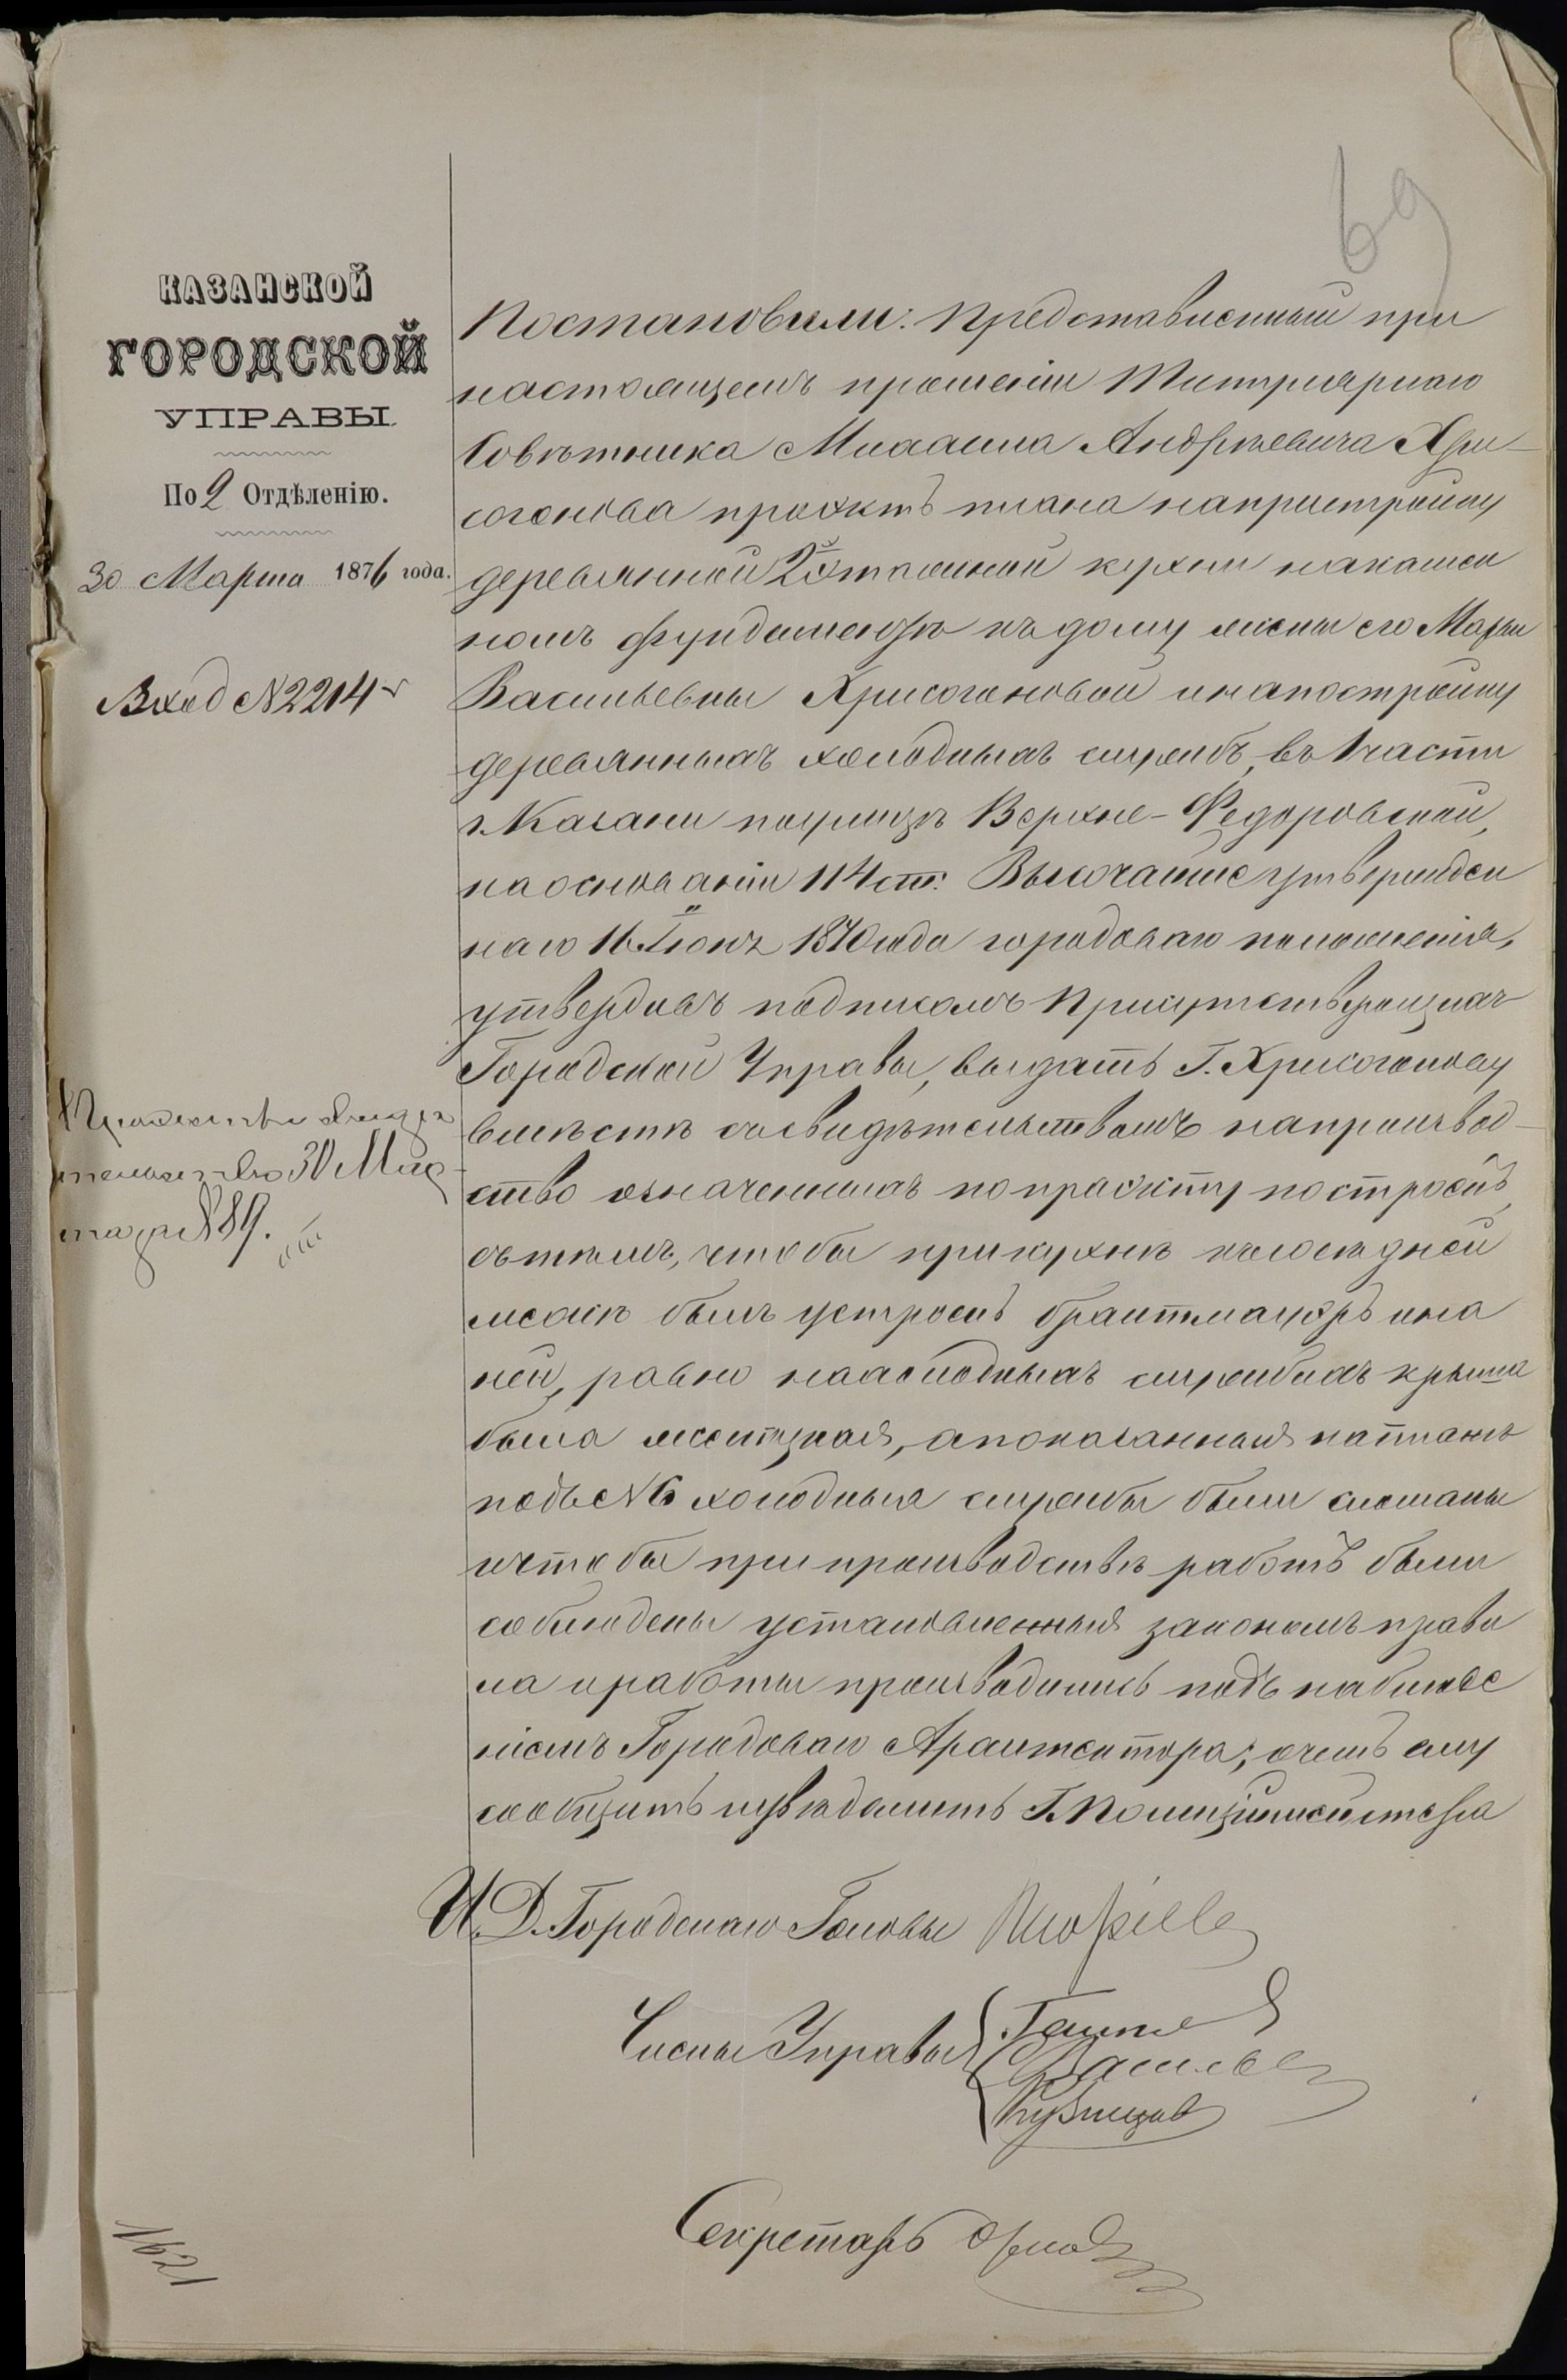 69
КАЗАНСКОЙ
ГОРОДСКОЙ
УПРАВЫ
По 2 Отдѣленію.
30 Марта 1876 года.
Вход №2214
30 Мар
та за №89.
1621
Постановили: Представленный при
настоящемъ прошеніи Титулярнаго
Совѣтника Михаила Андреевича Хри-
согонова проэктъ плана на пристройку
деревянной 2хэтажной кухни на камен
номъ фундаментѣ къ дому жены его Марьи
Васильевны Хрисогоновой и на постройку
деревянныхъ холодныхъ службъ, въ 1 части
г. Казани по улицѣ Верхне-Федоровской,
на основаніи 114 ст. Высочайше утвержден
наго 16 Іюня 1870 года городоваго положенія,
утвердивъ подписомъ Присутствующихъ
Городской Управы, выдать Г. Хрисогонову
вмѣстѣ со свидѣтельствомъ на производ-
ство означенныхъ по проэкту построекъ,
съ тѣмъ, чтобы при кухнѣ къ сосѣдней
межѣ былъ устроенъ брантмауеръ и на
ней, равно на холодныхъ службахъ крыша
была желѣзная, а показанныя на планѣ
подъ №6 холодныя службы были сломаны
и чтобы при производствѣ работъ были
соблюдены установленныя закономъ прави
ла и работы производились подъ наблюде
ніемъ Городоваго Архитектора; о чемъ ему
сообщить и увѣдомить Г. Полиціймейстера
И. Д. Городскаго Головы
Члены Управы
Васильев
Кузнецов
Секретарь Орлов